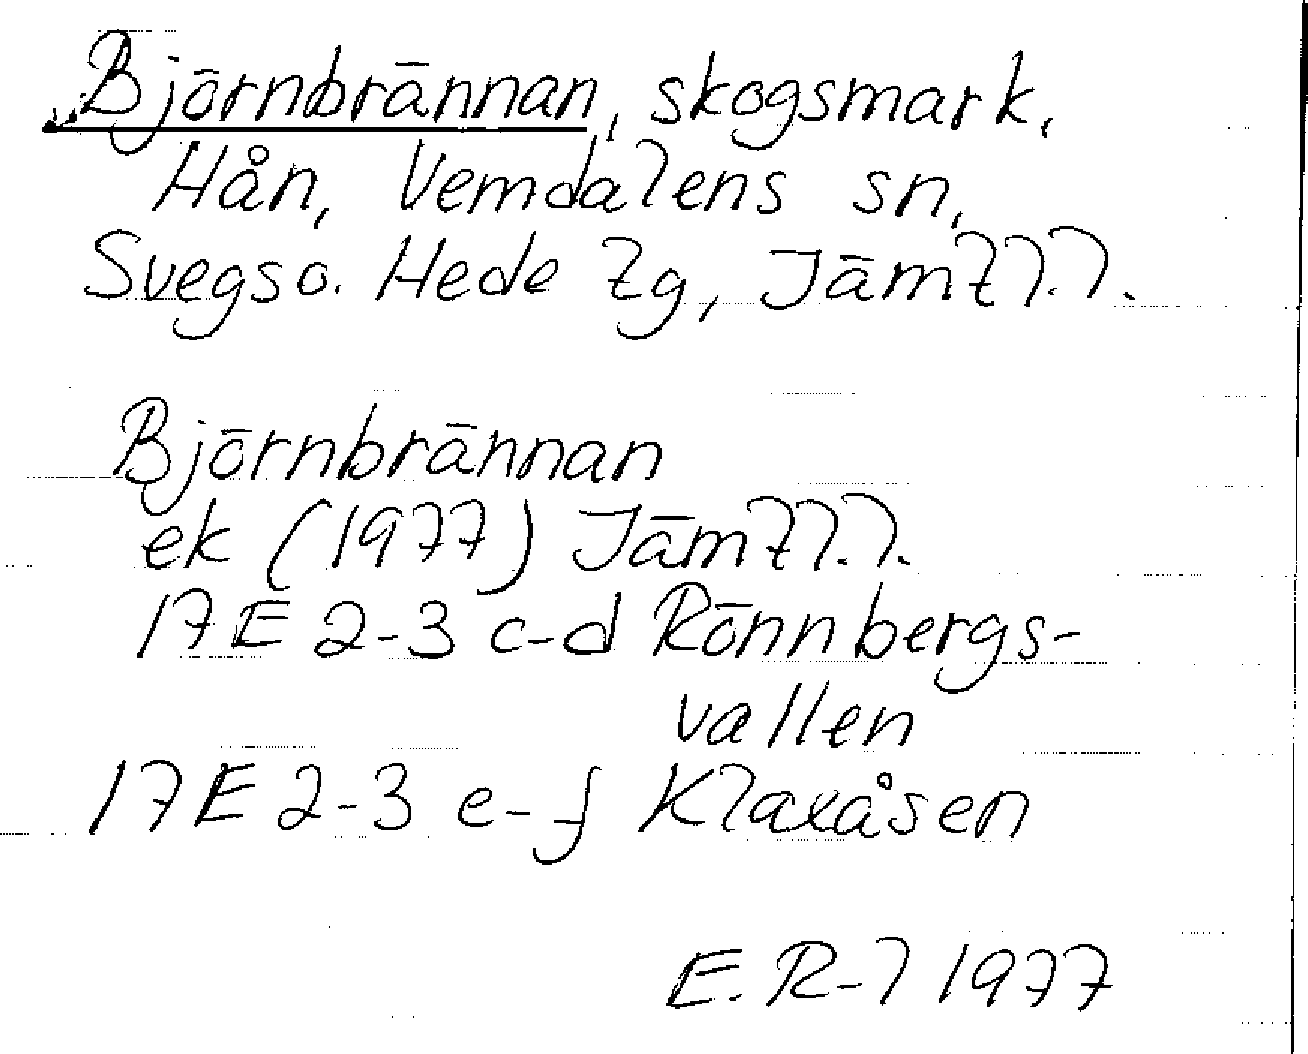 Björnbrännan, skogsmark,
Hån, Vemdalens sn,
Svegs o. Hede tg, Jämtl.l.
Björnbrännan
ek (1977) Jämtl.l.
17E 2-3 c-d Rönnbergs-
vallen
17E 2-3 e-f Klaxåsen
E.R-l 1977